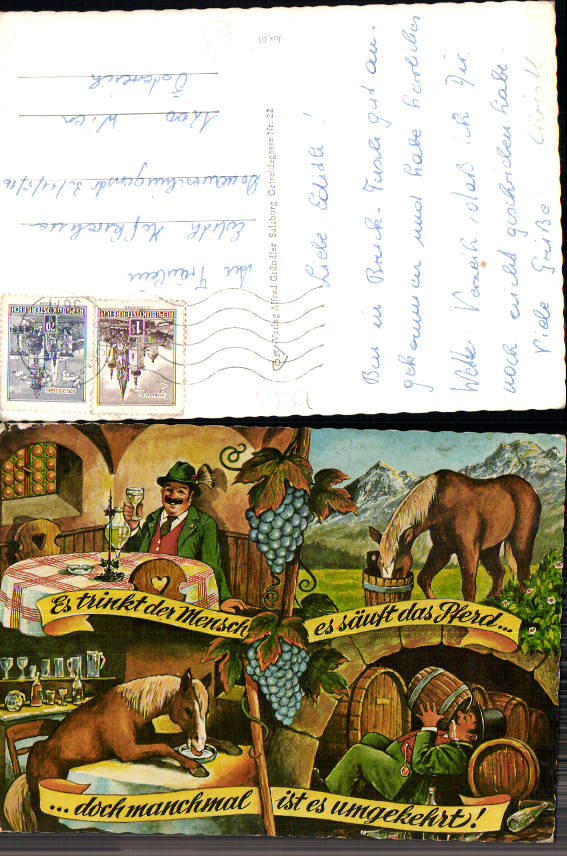 Jux 01
Liebe Edith!
Bin in Bruck-Fusch gut an-
gekommen und habe herrliches
Wetter. Verzeih, daß ich Dir
noch nicht geschrieben habe.
Viele Grüße
Christl
© Verlag Alfred Gründler Salzburg Getreidegasse Nr. 22
REPUBLIK ÖSTERREICH
REPUBLIK ÖSTERREICH
An Fräulein
Edith
1200 Wien
Österreich
Es trinkt der Mensch
es säuft das Pferd...
... doch manchmal
ist es umgekehrt!